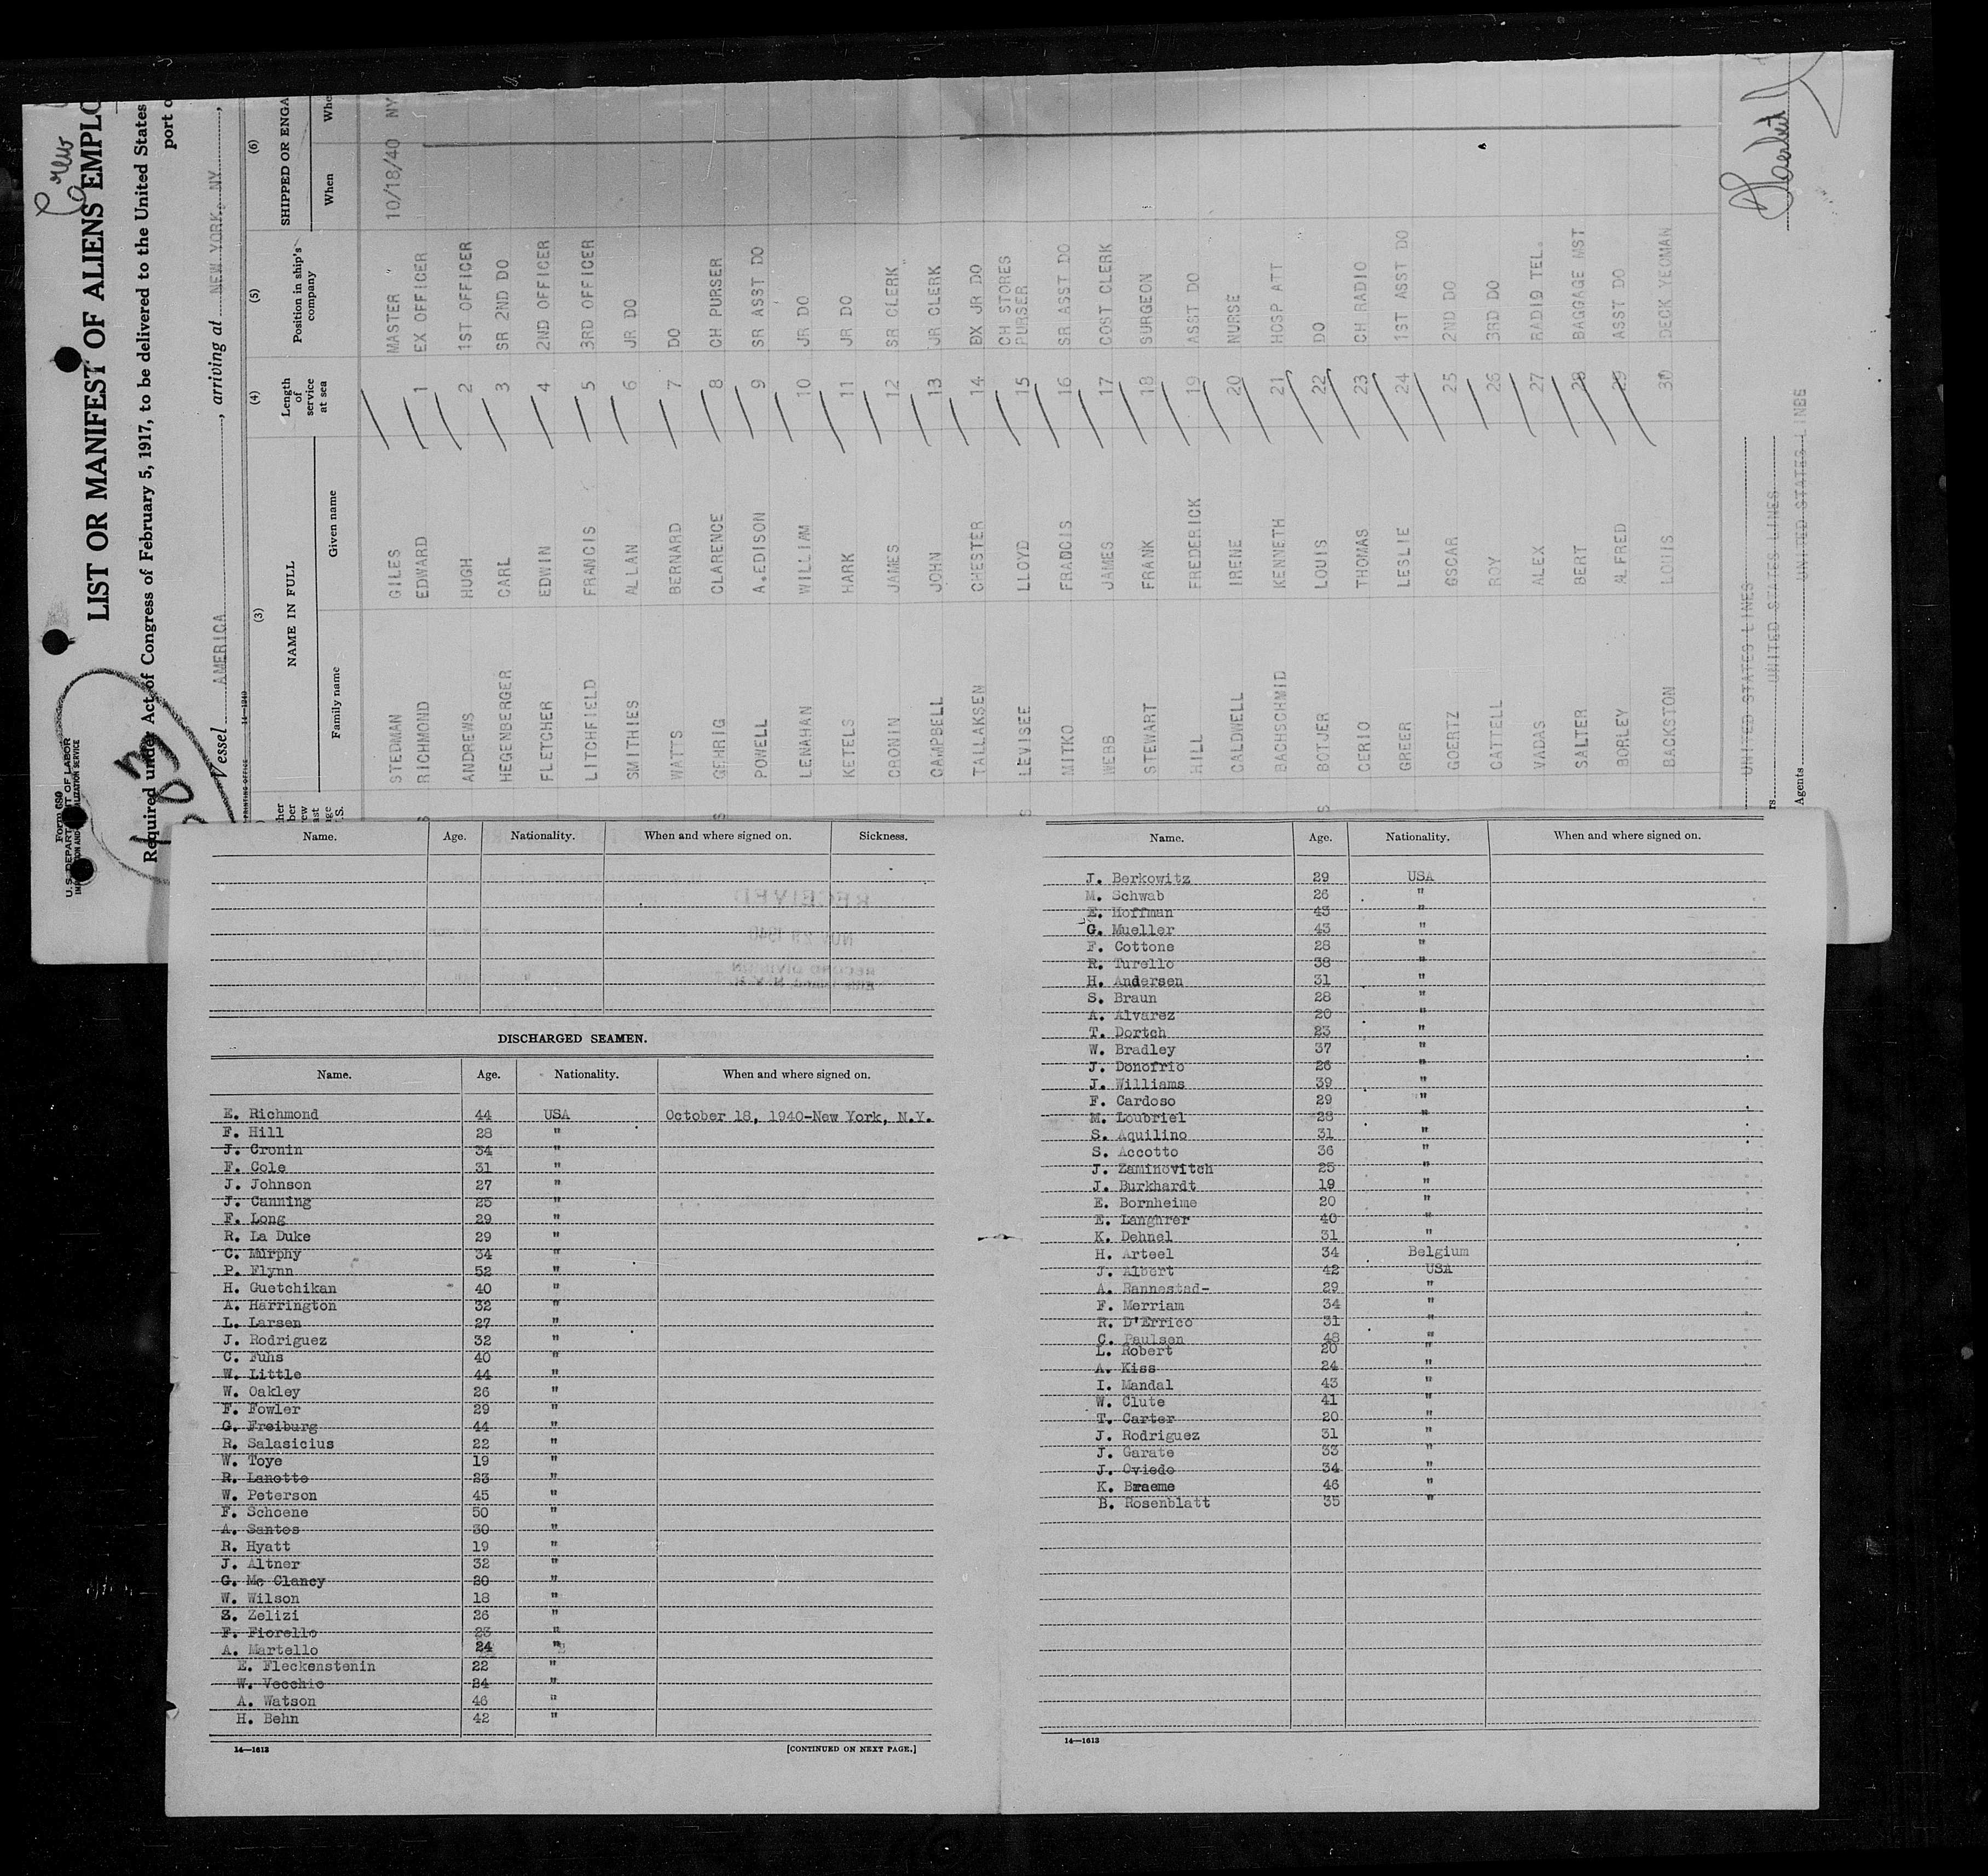 Crew
Form 689
U.S. DEPARTMENT OF LABOR
LIST OR MANIFEST OF ALIENS EMPLO
Required under Act of Congress of February 5, 1917, to be delivered to the United States
port o
Vessel AMERICA , arriving at NEW YORK, NY ,
PRINTING OFFICE 14—1240
(3) (4) (5) (6)
NAME IN FULL Length of service at sea Position in ship's company SHIPPED OR ENGA
Family name Given name When Whe
STEDMAN GILES MASTER 10/18/40 NY
RICHMOND EDWARD 1 EX OFFICER "
ANDREWS HUGH 2 1ST OFFICER
HEGENBERGER CARL 3 SR 2ND DO
FLETCHER EDWIN 4 2ND OFFICER
LITCHFIELD FRANCIS 5 3RD OFFICER
SMITHIES ALLAN 6 JR DO
WATTS BERNARD 7 DO
GEHRIG CLARENCE 8 CH PURSER
POWELL A.EDISON 9 SR ASST DO
LENAHAN WILLIAM 10 JR DO
KETELS HARK 11 JR DO
CRONIN JAMES 12 SR CLERK
CAMPBELL JOHN 13 JR CLERK
TALLAKSEN CHESTER 14 EX JR DO
LEVISEE LLOYD 15 CH STORES PURSER
MITKO FRANCIS 16 SR ASST DO
WEBB JAMES 17 COST CLERK
STEWART FRANK 18 SURGEON
HILL FREDERICK 19 ASST DO
CALDWELL IRENE 20 NURSE
BACHSCHMID KENNETH 21 HOSP ATT
BOTJER LOUIS 22 DO
CERIO THOMAS 23 CH RADIO
GREER LESLIE 24 1ST ASST DO
GOERTZ OSCAR 25 2ND DO
CATTELL ROY 26 3RD DO
VADAS ALEX 27 RADIO TEL.
SALTER BERT 28 BAGGAGE MST
BORLEY ALFRED 29 ASST DO
BACKSTON LOUIS 30 DECK YEOMAN
UNITED STATES LINES
UNITED STATES LINES
Agents UNITED STATES LINES
Name. Age. Nationality. When and where signed on. Sickness.
RECEIVED
NOV 29 1940
RECORD DIVISION
DISCHARGED SEAMEN.
Name. Age. Nationality. When and where signed on.
E. Richmond 44 USA October 18, 1940-New York, N.Y.
F. Hill 28 "
J. Cronin 34 "
F. Cole 31 "
J. Johnson 27 "
J. Canning 25 "
F. Long 29 "
R. La Duke 29 "
C. Murphy 34 "
P. Flynn 52 "
H. Guetchikan 40 "
A. Harrington 32 "
L. Larsen 27 "
J. Rodriguez 32 "
C. Fuhs 40 "
W. Little 44 "
W. Oakley 26 "
F. Fowler 29 "
G. Freiburg 44 "
R. Salasicius 22 "
W. Toye 19 "
R. Lanotte 23 "
W. Peterson 45 "
F. Schoene 50 "
A. Santos 30 "
R. Hyatt 19 "
J. Altner 32 "
G. Mc Clancy 20 "
W. Wilson 18 "
S. Zelizi 26 "
F. Fiorello 23 "
A. Martello 24 "
E. Fleckenstenin 22 "
W. Vecchio 24 "
A. Watson 46 "
H. Behn 42 "
14—1613 [CONTINUED ON NEXT PAGE.]
Name. Age. Nationality. When and where signed on.
J. Berkowitz 29 USA
M. Schwab 26 "
E. Hoffman 43 "
G. Mueller 43 "
F. Cottone 28 "
R. Turello 38 "
H. Andersen 31 "
S. Braun 28 "
A. Alvarez 20 "
T. Dortch 23 "
W. Bradley 37 "
J. Donofrio 26 "
J. Williams 39 "
F. Cardoso 29 "
M. Loubriel 28 "
S. Aquilino 31 "
S. Accotto 36 "
J. Zaminovitch 25 "
J. Burkhardt 19 "
E. Bornheime 20 "
E. Langhrer 40 "
K. Dehnel 31 "
H. Arteel 34 Belgium
J. Albert 42 USA
A. Rannestad- 29 "
F. Merriam 34 "
R. D'Errico 31 "
C. Paulsen 48 "
L. Robert 20 "
A. Kiss 24 "
I. Mandal 43 "
W. Clute 41 "
T. Carter 20 "
J. Rodriguez 31 "
J. Garate 33 "
J. Oviedo 34 "
K. Braeme 46 "
B. Rosenblatt 35 "
14—1613